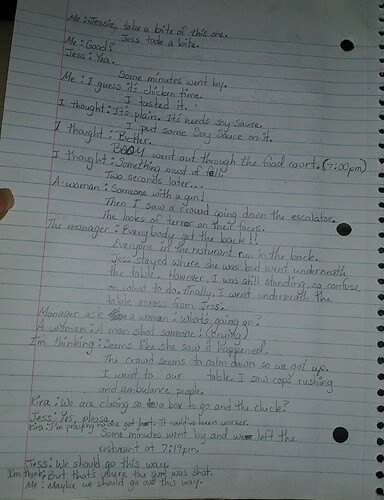 Me: Jessie, take a bite of this one.
Jess took a bite.
Me: Good?
Jess: Yea.
Some minutes went by.
Me: I guess it's chicken time.
I tasted it.
I thought: It's plain. It's needs soy sauce.
I put some Soy Sauce on it.
I thought: Better.
BOOM went out through the food court. (7:00pm)
I thought: Something must of fell.
Two seconds later...
A woman: Someone with a gun!
Then I saw a crowd going down the escalator.
The looks of terror on their faces.
The manager: Everybody get the back!!
Everyone in the resturant run in the back.
Jess stayed where she was but went underneath
the table. However, I was still standing, so confuse
on what to do. Finally, I went underneath the
table across from Jess.
Manager ask a woman: What's going on?
A woman: A man shot someone! (Crying)
I'm thinking: Seems like she saw it happened.
The crowd seems to calm down so we got up.
I went to our table. I saw cops rushing
and ambulance people.
Kira: We are closing so a box to go and the check?
Jess: Yes, please.
Kira: I'm praying no one got hurt. It could've been worser.
Some minutes went by and we left the
resturant at 7:19pm.
Jess: We should go this way.
I'm think: But that's where the gun was shot.
Me: Maybe we should go out this way.